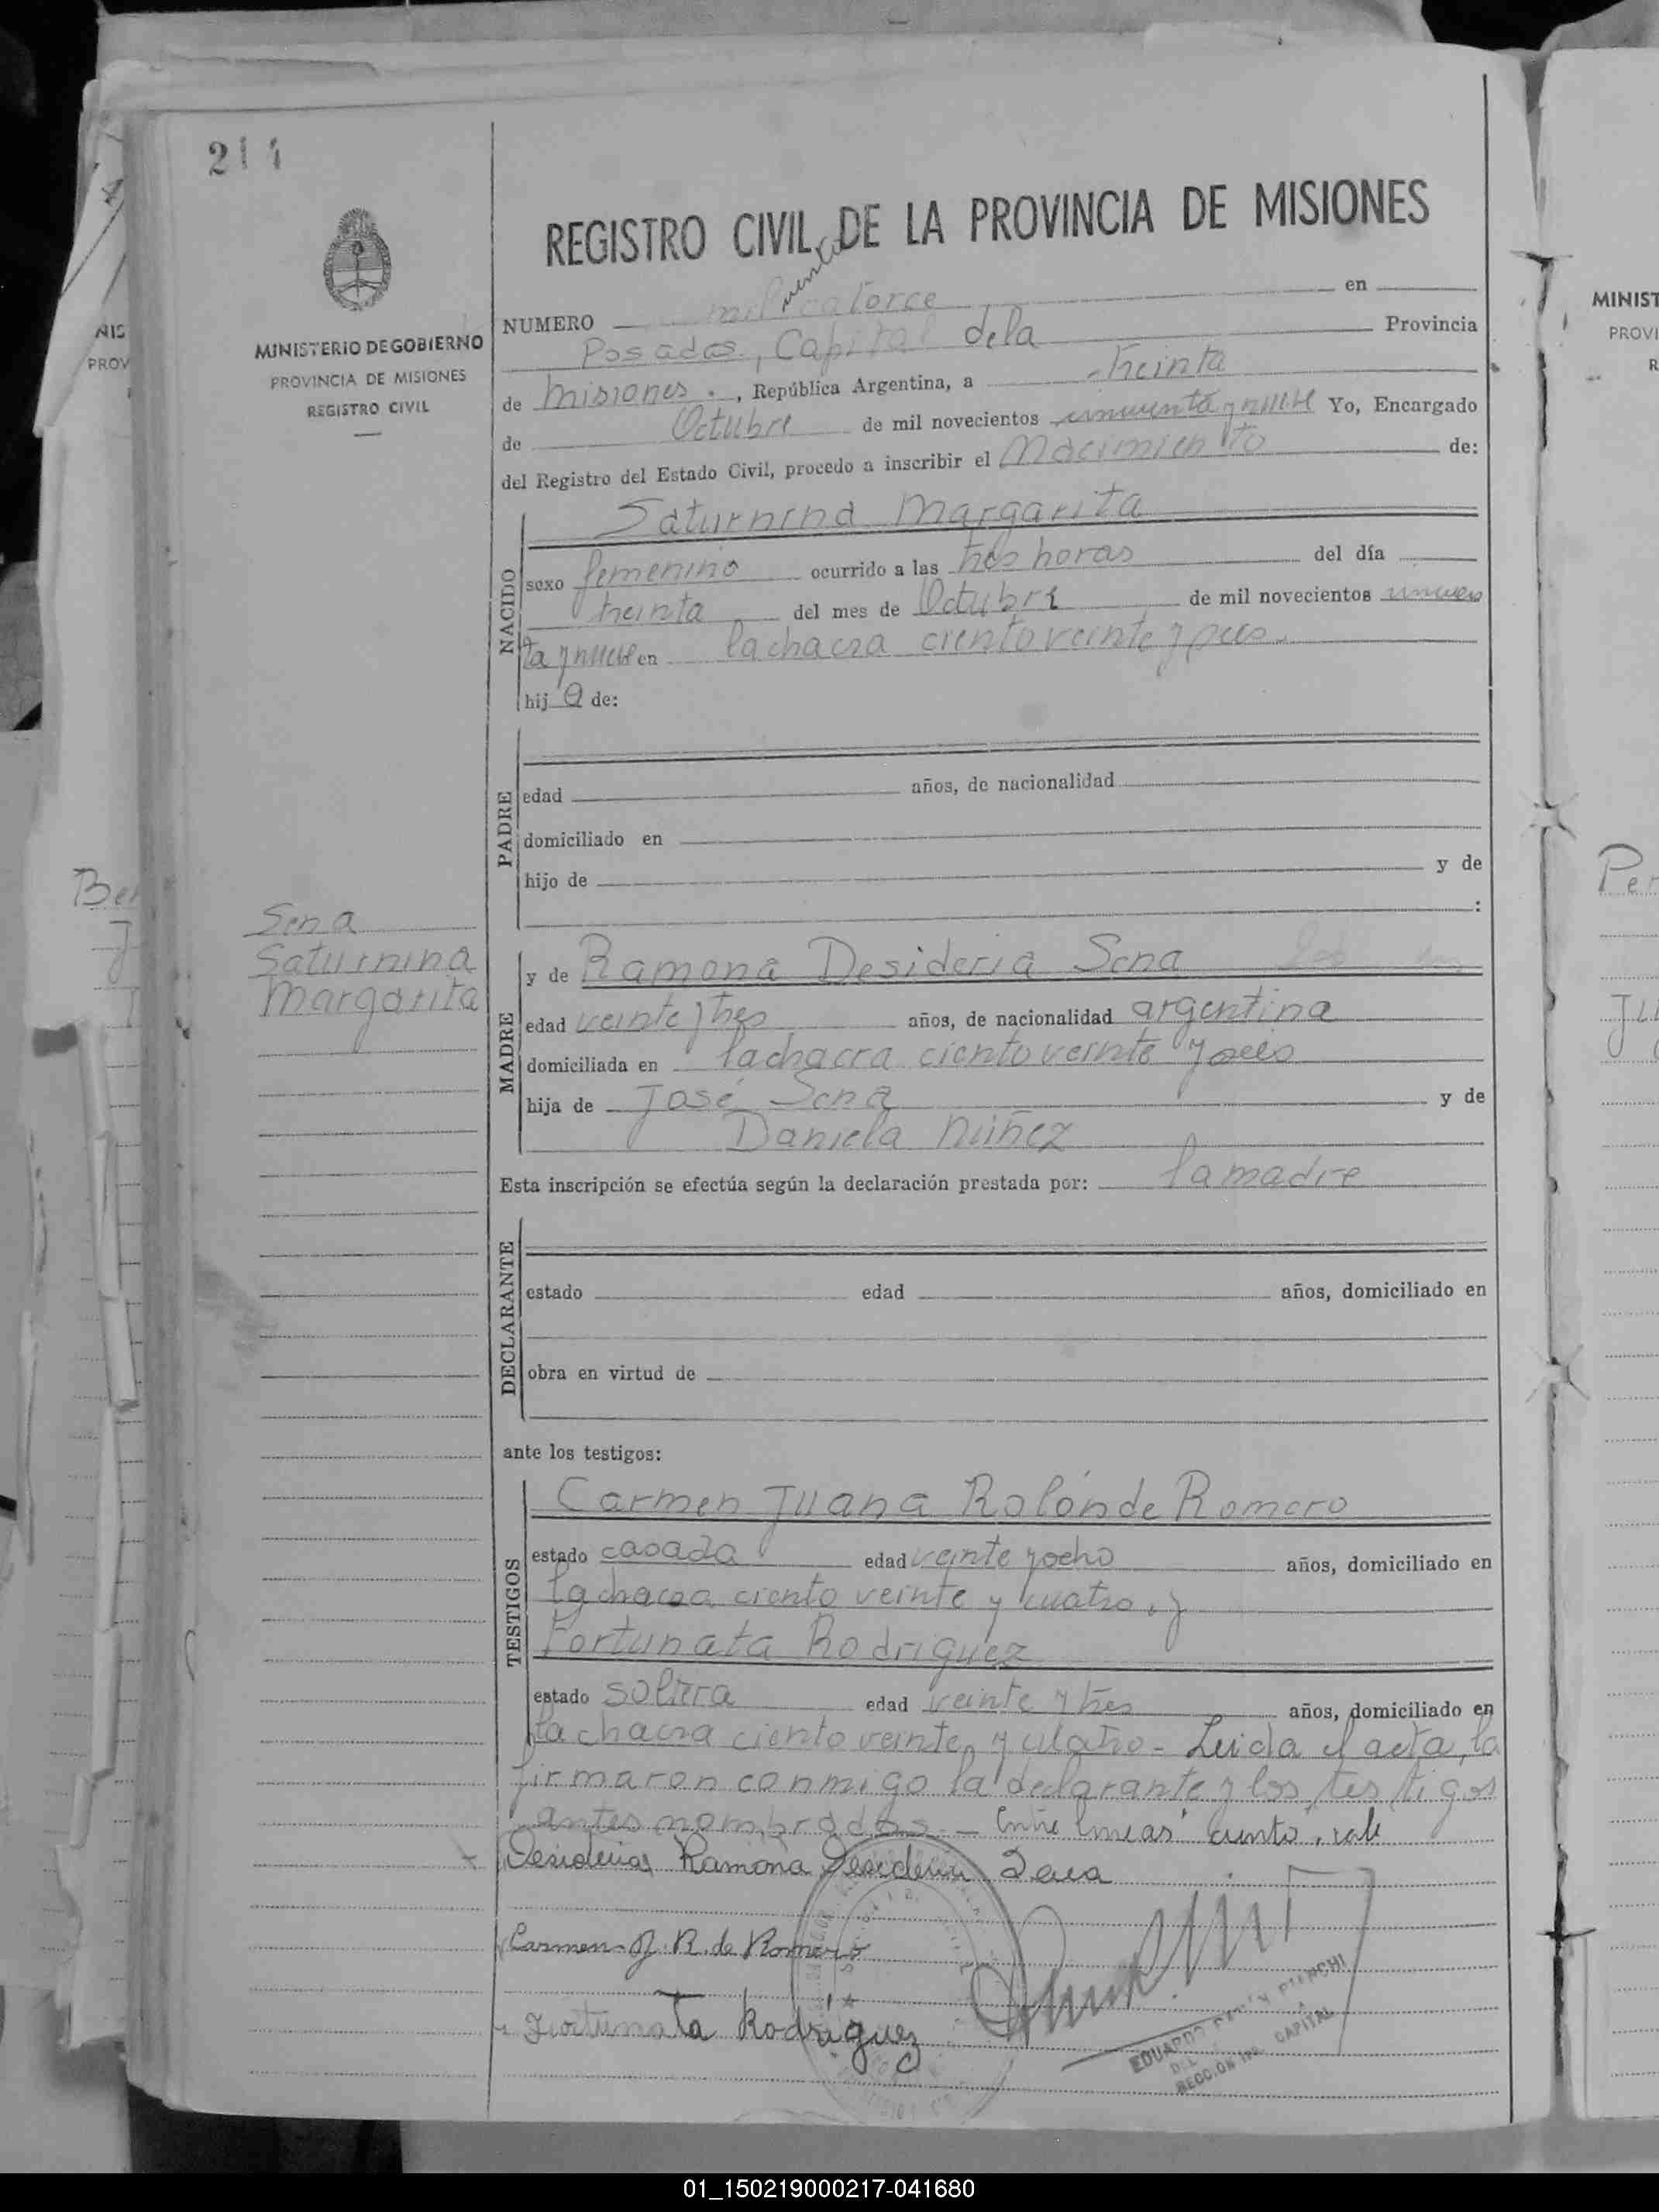 214
MINISTERIO DE GOBIERNO
PROVINCIA DE MISIONES
REGISTRO CIVIL
REGISTRO CIVIL DE LA PROVINCIA DE MISIONES
ciento
NUMERO mil catorce en
Posadas, Capital de la Provincia
de Misiones, República Argentina, a treinta
de Octubre de mil novecientos cincuenta y nueve Yo, Encargado
del Registro del Estado Civil, procedo a inscribir el Nacimiento de:
NACIDO
Saturnina Margarita
sexo femenino ocurrido a las tres horas del día
treinta del mes de Octubre de mil novecientos cincuen
ta y nueve en la chacra ciento veinte y seis.
hija de:
PADRE
edad años, de nacionalidad
domiciliado en
hijo de y de
:
Sena
Saturnina
Margarita
MADRE
y de Ramona Desideria Sena
edad veinte y tres años, de nacionalidad argentina
domiciliada en la chacra ciento veinte y seis
hija de José Sena y de
Daniela Núñez
Esta inscripción se efectúa según la declaración prestada por: la madre
DECLARANTE
estado edad años, domiciliado en
obra en virtud de
ante los testigos:
TESTIGOS
Carmen Juana Rolón de Romero
estado casada edad veinte y ocho años, domiciliado en
la chacra ciento veinte y cuatro, y
Fortunata Rodriguez
estado soltera edad veinte y tres años, domiciliado en
la chacra ciento veinte y cuatro - Leida el acta, la
firmaron conmigo la declarante y los testigos
antes nombrados. - Entre lineas "ciento", vale
Desideria Ramona Desideria Sena
Carmen J. R. de Romero
Fortunata Rodriguez
EDUARDO BIANCHI
SECCION 1ra. CAPITAL
MINIST
PROVI
R
Per
01_150219000217-041680